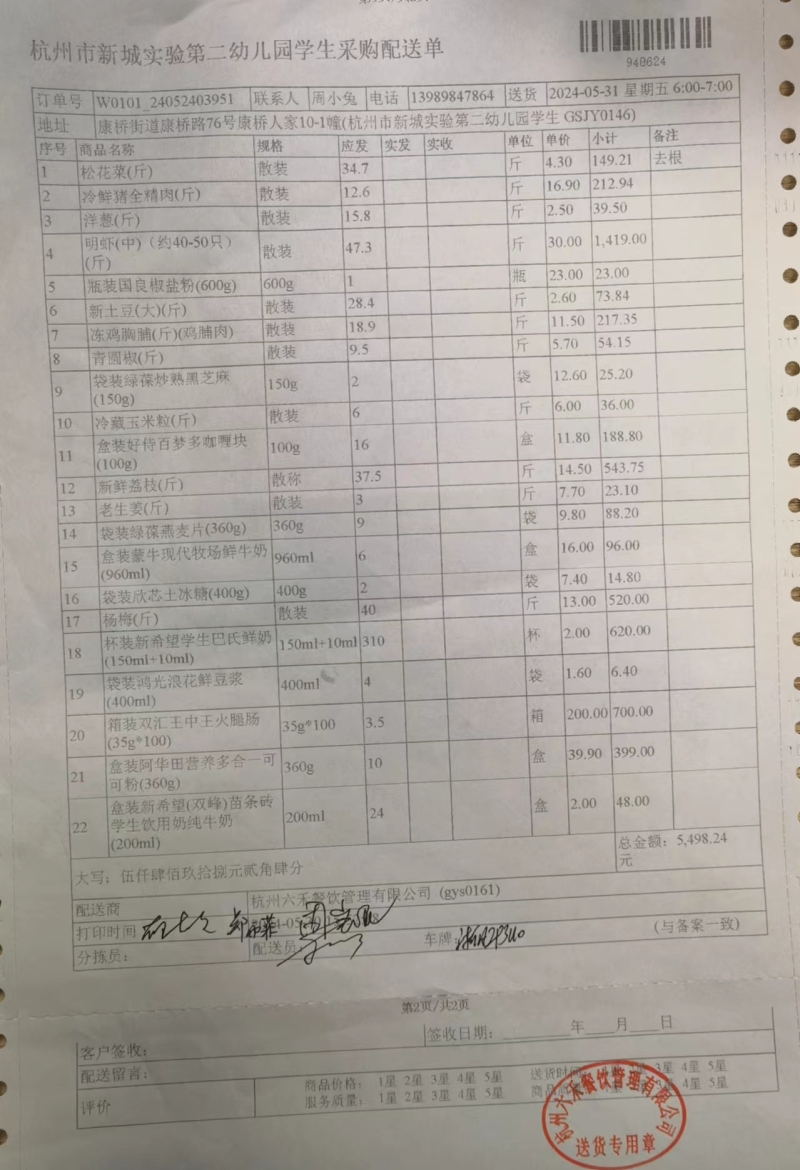 杭州市新城实验第二幼儿园学生采购配送单
940624
订单号 W0101_24052403951 联系人 周小兔 电话 13989847864 送货 2024-05-31 星期五 6:00-7:00
地址 康桥街道康桥路76号康桥人家10-1幢(杭州市新城实验第二幼儿园学生 GSJY0146)
序号 商品名称 规格 应发 实发 实收 单位 单价 小计 备注
1 松花菜(斤) 散装 34.7 斤 4.30 149.21 去根
2 冷鲜猪全精肉(斤) 散装 12.6 斤 16.90 212.94
3 洋葱(斤) 散装 15.8 斤 2.50 39.50
4 明虾(中)（约40-50只）(斤) 散装 47.3 斤 30.00 1,419.00
5 瓶装国良椒盐粉(600g) 600g 1 瓶 23.00 23.00
6 新土豆(大)(斤) 散装 28.4 斤 2.60 73.84
7 冻鸡胸脯(斤)(鸡脯肉) 散装 18.9 斤 11.50 217.35
8 青圆椒(斤) 散装 9.5 斤 5.70 54.15
9 袋装绿葆炒熟黑芝麻(150g) 150g 2 袋 12.60 25.20
10 冷藏玉米粒(斤) 散装 6 斤 6.00 36.00
11 盒装好侍百梦多咖喱块(100g) 100g 16 盒 11.80 188.80
12 新鲜荔枝(斤) 散称 37.5 斤 14.50 543.75
13 老生姜(斤) 散装 3 斤 7.70 23.10
14 袋装绿葆燕麦片(360g) 360g 9 袋 9.80 88.20
15 盒装蒙牛现代牧场鲜牛奶(960ml) 960ml 6 盒 16.00 96.00
16 袋装欣芯土冰糖(400g) 400g 2 袋 7.40 14.80
17 杨梅(斤) 散装 40 斤 13.00 520.00
18 杯装新希望学生巴氏鲜奶(150ml+10ml) 150ml+10ml 310 杯 2.00 620.00
19 袋装鸿光浪花鲜豆浆(400ml) 400ml 4 袋 1.60 6.40
20 箱装双汇王中王火腿肠(35g*100) 35g*100 3.5 箱 200.00 700.00
21 盒装阿华田营养多合一可可粉(360g) 360g 10 盒 39.90 399.00
22 盒装新希望(双峰)苗条砖学生饮用奶纯牛奶(200ml) 200ml 24 盒 2.00 48.00
大写: 伍仟肆佰玖拾捌元贰角肆分 总金额: 5,498.24元
配送商 杭州六禾餐饮管理有限公司 (gys0161)
打印时间
分拣员: 配送员 车牌 (与备案一致)
第2页/共2页
客户签收: 签收日期: ______年____月____日
配送留言:
评价 商品价格: 1星 2星 3星 4星 5星 送货时间 3星 4星 5星
服务质量: 1星 2星 3星 4星 5星 4星 5星
杭州六禾餐饮管理有限公司
送货专用章